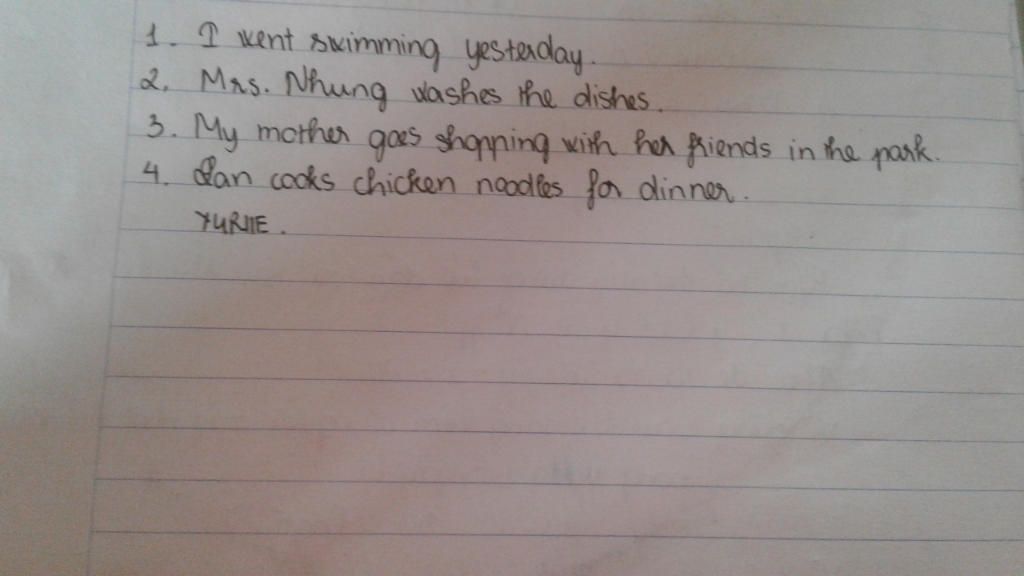 1. I went swimming yesterday.
2. Mrs. Nhung washes the dishes.
3. My mother goes shopping with her friends in the park.
4. Lan cooks chicken noodles for dinner.
YURIE.